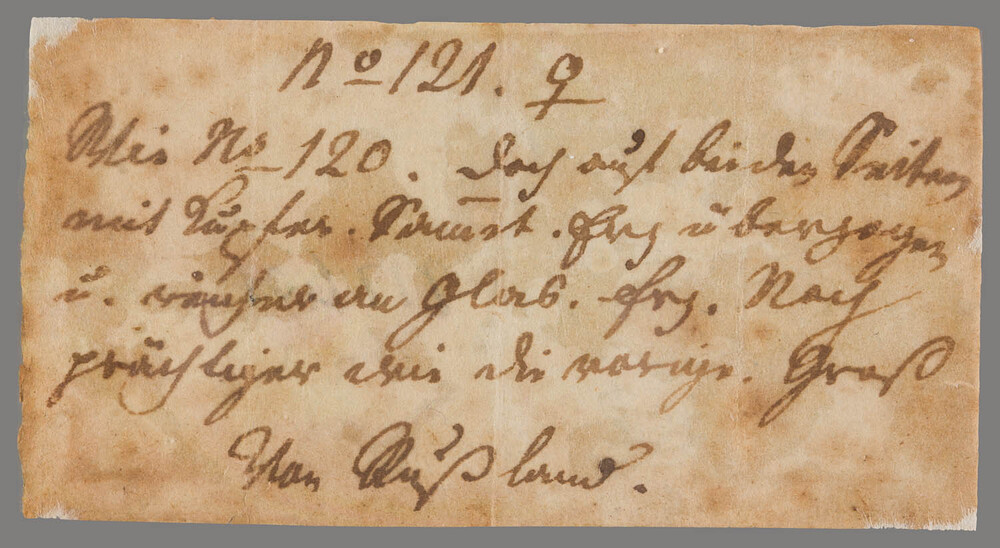 No 121. ♀
Wie No 120. Doch auf beiden Seiten
mit Kupfer. Sammt. Erz überzogen
u. reicher an Glas. Erz. Noch
prächtiger wie die vorige. Groß
Von Rußland.